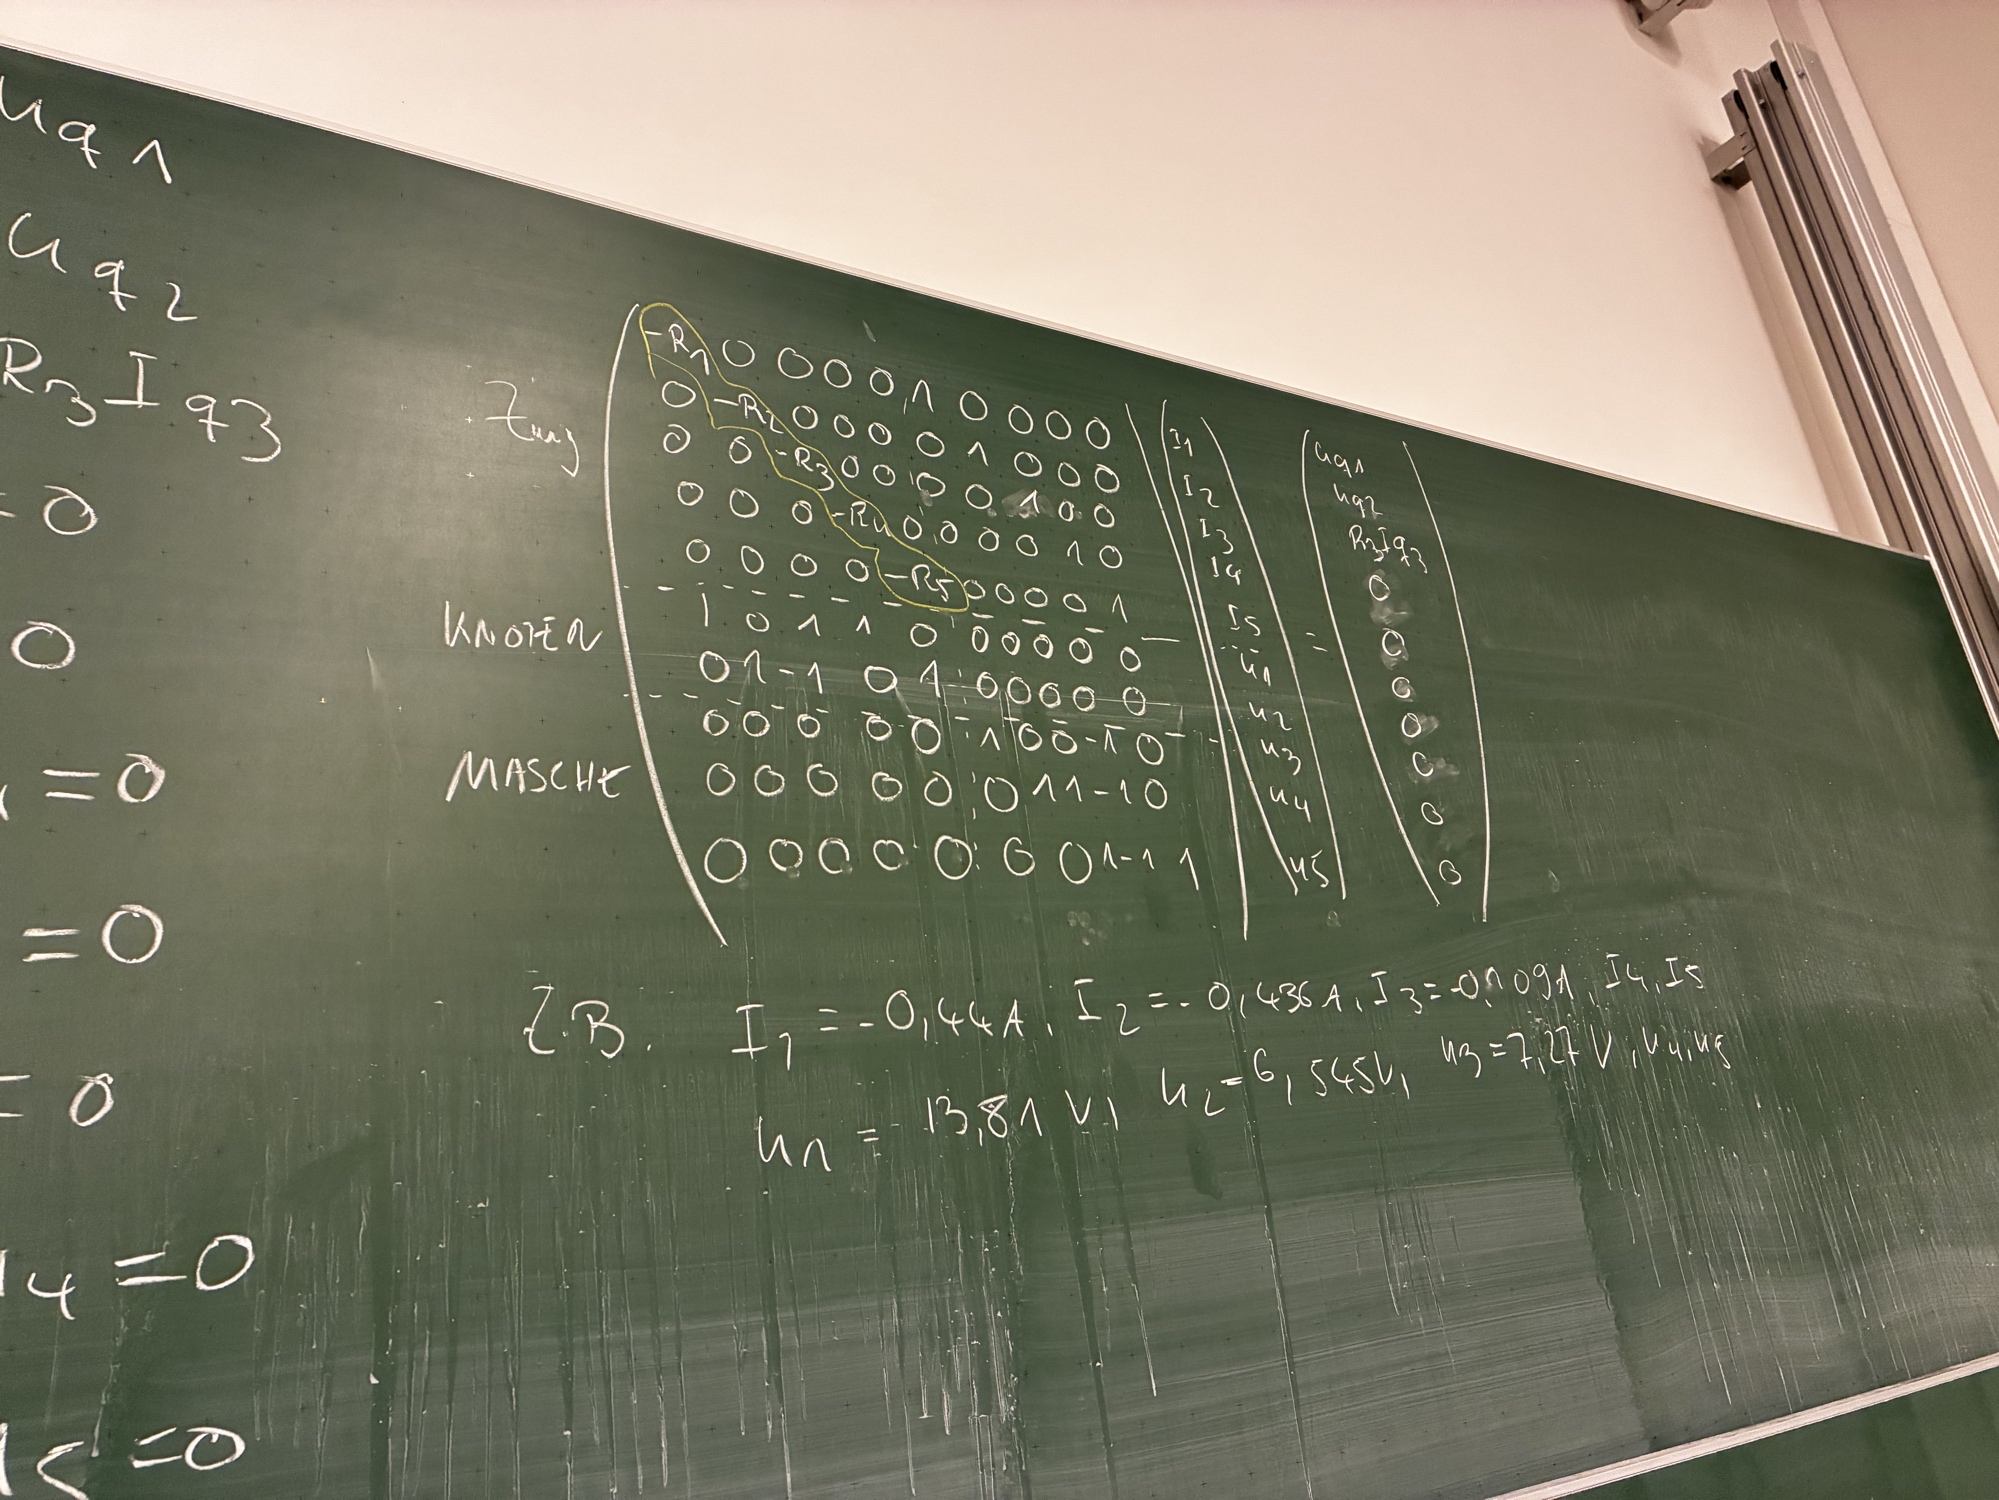 uq1
uq2
R3Iq3
=0
0
=0
=0
=0
4=0
5=0
Zweig
-R1 0 0 0 0 1 0 0 0 0
0 -R2 0 0 0 0 1 0 0 0
0 0 -R3 0 0 0 0 1 0 0
0 0 0 -R4 0 0 0 0 1 0
0 0 0 0 -R5 0 0 0 0 1
KNOTEN
1 0 1 1 0 0 0 0 0 0
0 1 -1 0 1 0 0 0 0 0
MASCHE
0 0 0 0 0 1 0 0 -1 0
0 0 0 0 0 0 1 1 -1 0
0 0 0 0 0 0 0 1 -1 1
I1
I2
I3
I4
I5
u1
u2
u3
u4
u5
=
uq1
uq2
R3Iq3
0
0
0
0
0
0
0
Z.B. I1 = -0,44A, I2 = -0,436A, I3 = -0,109A, I4, I5
u1 = 13,81 V, u2 = 6,545V, u3 = 7,27 V, u4, u5